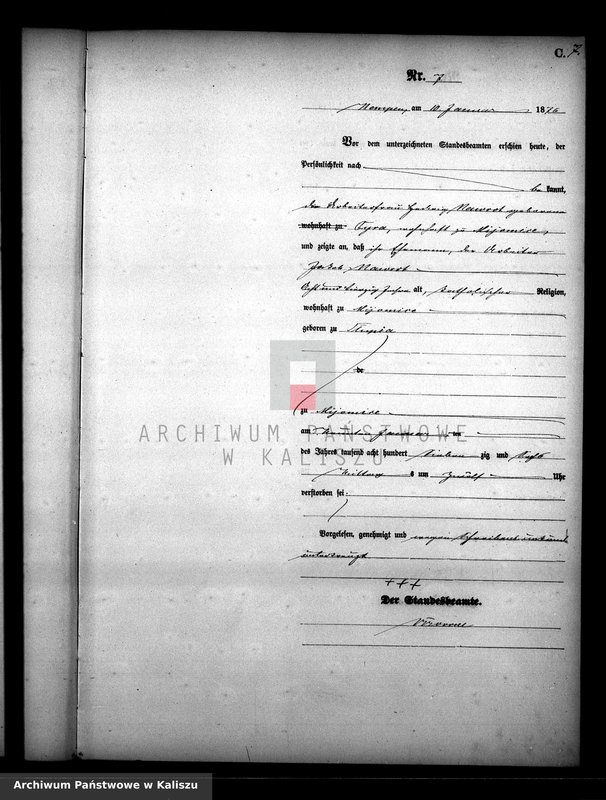 C. 7.
Nr. 7
Kempen, am 10 Januar 1876
Vor dem unterzeichneten Standesbeamten erschien heute, der
Persönlichkeit nach
be kannt,
die Arbeiterfrau Hedwig Nawrot geborene
wohnhaft zu Cyra, wohnhaft zu Mijomice,
und zeigte an, daß ihr Ehemann, der Arbeiter
Jakob Nawrot
alt, katholischer Religion,
wohnhaft zu Mijomice
geboren zu Slupia
zu Mijomice
am Januar
des Jahres tausend acht hundert sieben zig und sechs
Mittags um zwölf Uhr
verstorben sei.
Vorgelesen, genehmigt und wegen Schreibensunkunde
unterkreuzt
+++
Der Standesbeamte.
ARCHIWUM PAŃSTWOWE
W KALISZU
Archiwum Państwowe w Kaliszu